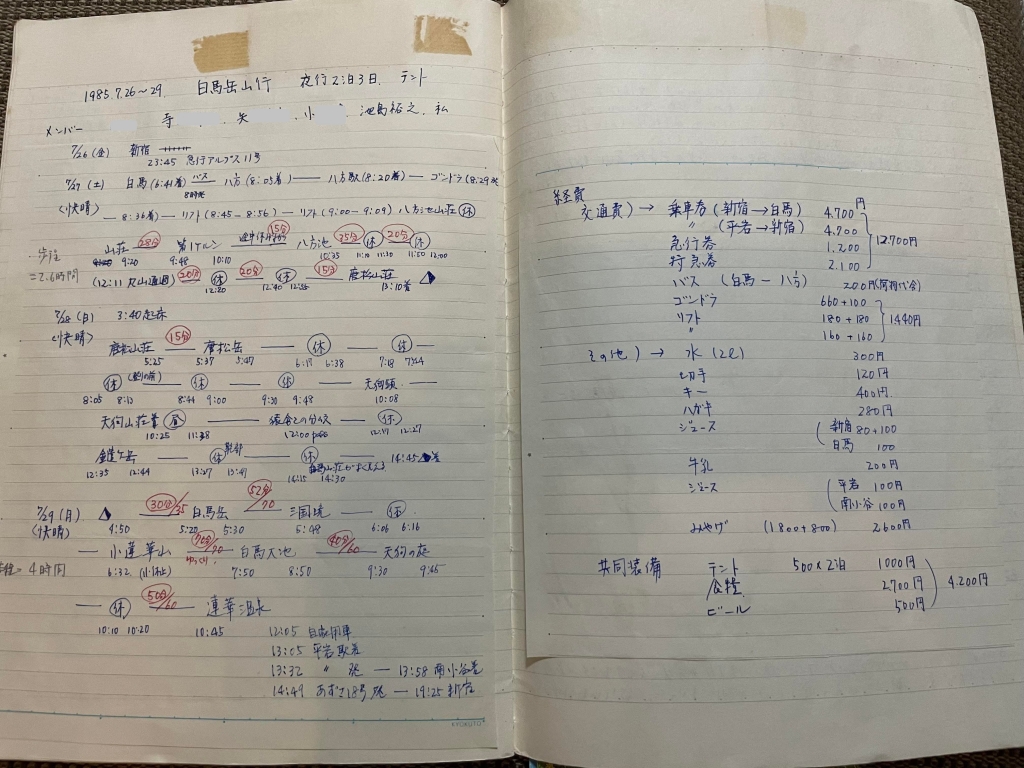 1985.7.26~29. 白馬岳山行 夜行2泊3日. テント
メンバー 寺 、矢 、小 、池島裕之、私
7/26(金) 新宿
23:45 急行アルプス11号
7/27(土) 白馬(6:41着) バス 八方(8:05着) — 八方駅(8:20着) — ゴンドラ(8:29発
(快晴) — 8:36着) — リフト(8:45-8:56) — リフト(9:00-9:09) 八方池山荘 休
歩程 山荘 28分 第1ケルン 15分 八方池 35分 休 20分 休
9:20 9:48 10:10 10:35 11:10 11:30 11:50 12:00
=2.6時間 (12:11 丸山通過) 20分 休 20分 休 15分 唐松山荘
12:20 12:40 13:10着
7/28(日) 3:40起床
(快晴) 15分
唐松山荘 — 唐松岳 — 休 — 休 —
5:25 5:37 5:47 6:19 6:38 7:18
休 — 休 — 休 — 天狗頭 —
8:05 8:13 8:44 9:00 9:30 9:48 10:08
天狗山荘 昼 — 猿倉との分岐 — 休 —
10:25 11:38 12:00 12:17 12:27
鑓ヶ岳 — 休 — 休 — 14:45 着
12:35 12:44 13:27 13:47 14:15 14:30
7/29(月) 30分/35 白馬岳 52分/70 三国境 — 休
(快晴) 4:50 5:20 5:30 5:49 6:06 6:16
— 小蓮華山 70分/90 白馬大池 40分/60 天狗の庭
ゆっくり
4時間 6:32 (小休止) 7:50 8:50 9:30 9:45
— 休 50分/60 蓮華温泉
10:10 10:20 10:45 12:05 自家用車
13:05 平岩駅着
13:32 〃 発 — 13:58 南小谷着
14:49 あずさ18号発 — 19:25 新宿
KYOKUTO
経費 円
交通費) → 乗車券(新宿→白馬) 4.700
〃 (平岩→新宿) 4.700
急行券 1.200 12.700円
特急券 2.100
バス (白馬 — 八方) 200円(荷物代含)
ゴンドラ 660+100
リフト 180+180 1440円
〃 160+160
その他) → 水(2ℓ) 300円
切手 120円
キー 400円
ハガキ 280円
ジュース 新宿 80+100
白馬 100
牛乳 200円
ジュース 平岩 100円
南小谷 100円
みやげ (1.800+800) 2600円
共同装備 テント 500×2泊 1000円
食糧 2.700円 4.200円
ビール 500円